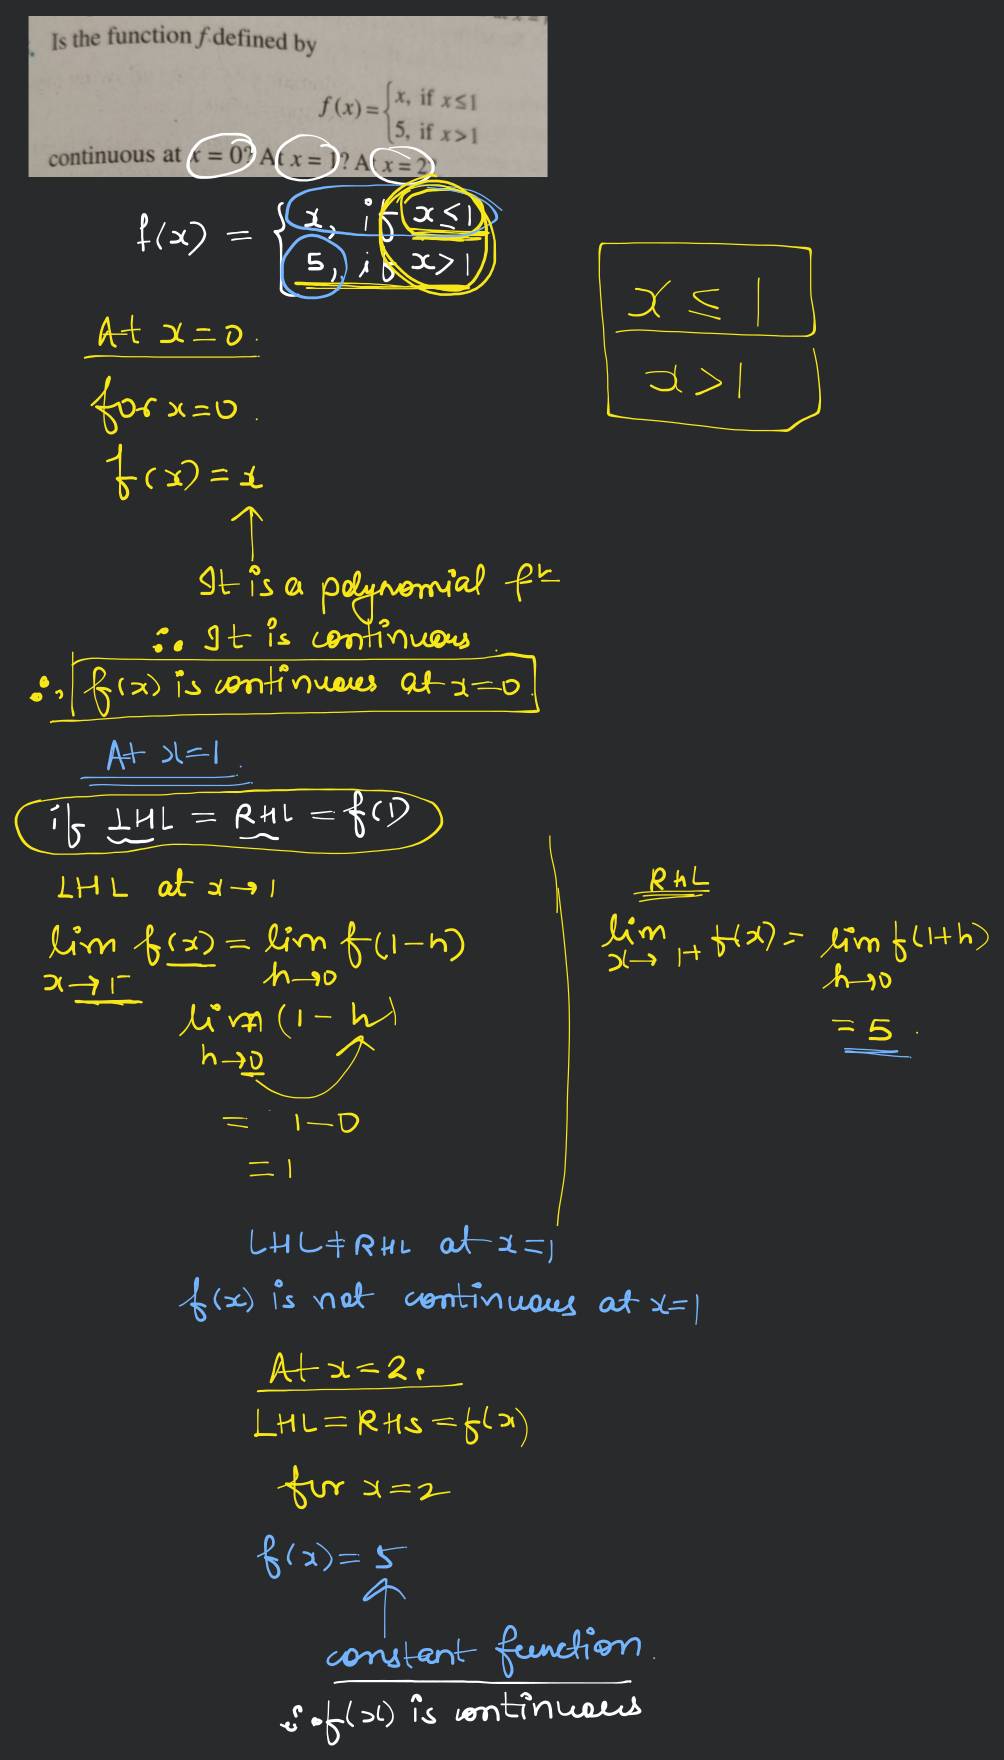 Is the function f defined by
f(x) = { x, if x≤1
5, if x>1
continuous at x = 0? At x = 1? At x = 2?
f(x) = { x, if x≤1
5, if x>1
x ≤ 1
x > 1
At x=0.
for x=0.
f(x) = x
It is a polynomial fn
∴ It is continuous
∴, f(x) is continuous at x=0.
At x=1.
if LHL = RHL = f(1)
LHL at x→1
lim f(x) = lim f(1-h)
x→1⁻ h→0
lim (1-h)
h→0
= 1-0
= 1
RHL
lim f(x) = lim f(1+h)
x→1+ h→0
= 5.
LHL ≠ RHL at x=1
f(x) is not continuous at x=1
At x=2.
LHL = RHS = f(x)
for x=2
f(x) = 5
constant function.
∴ f(x) is continuous